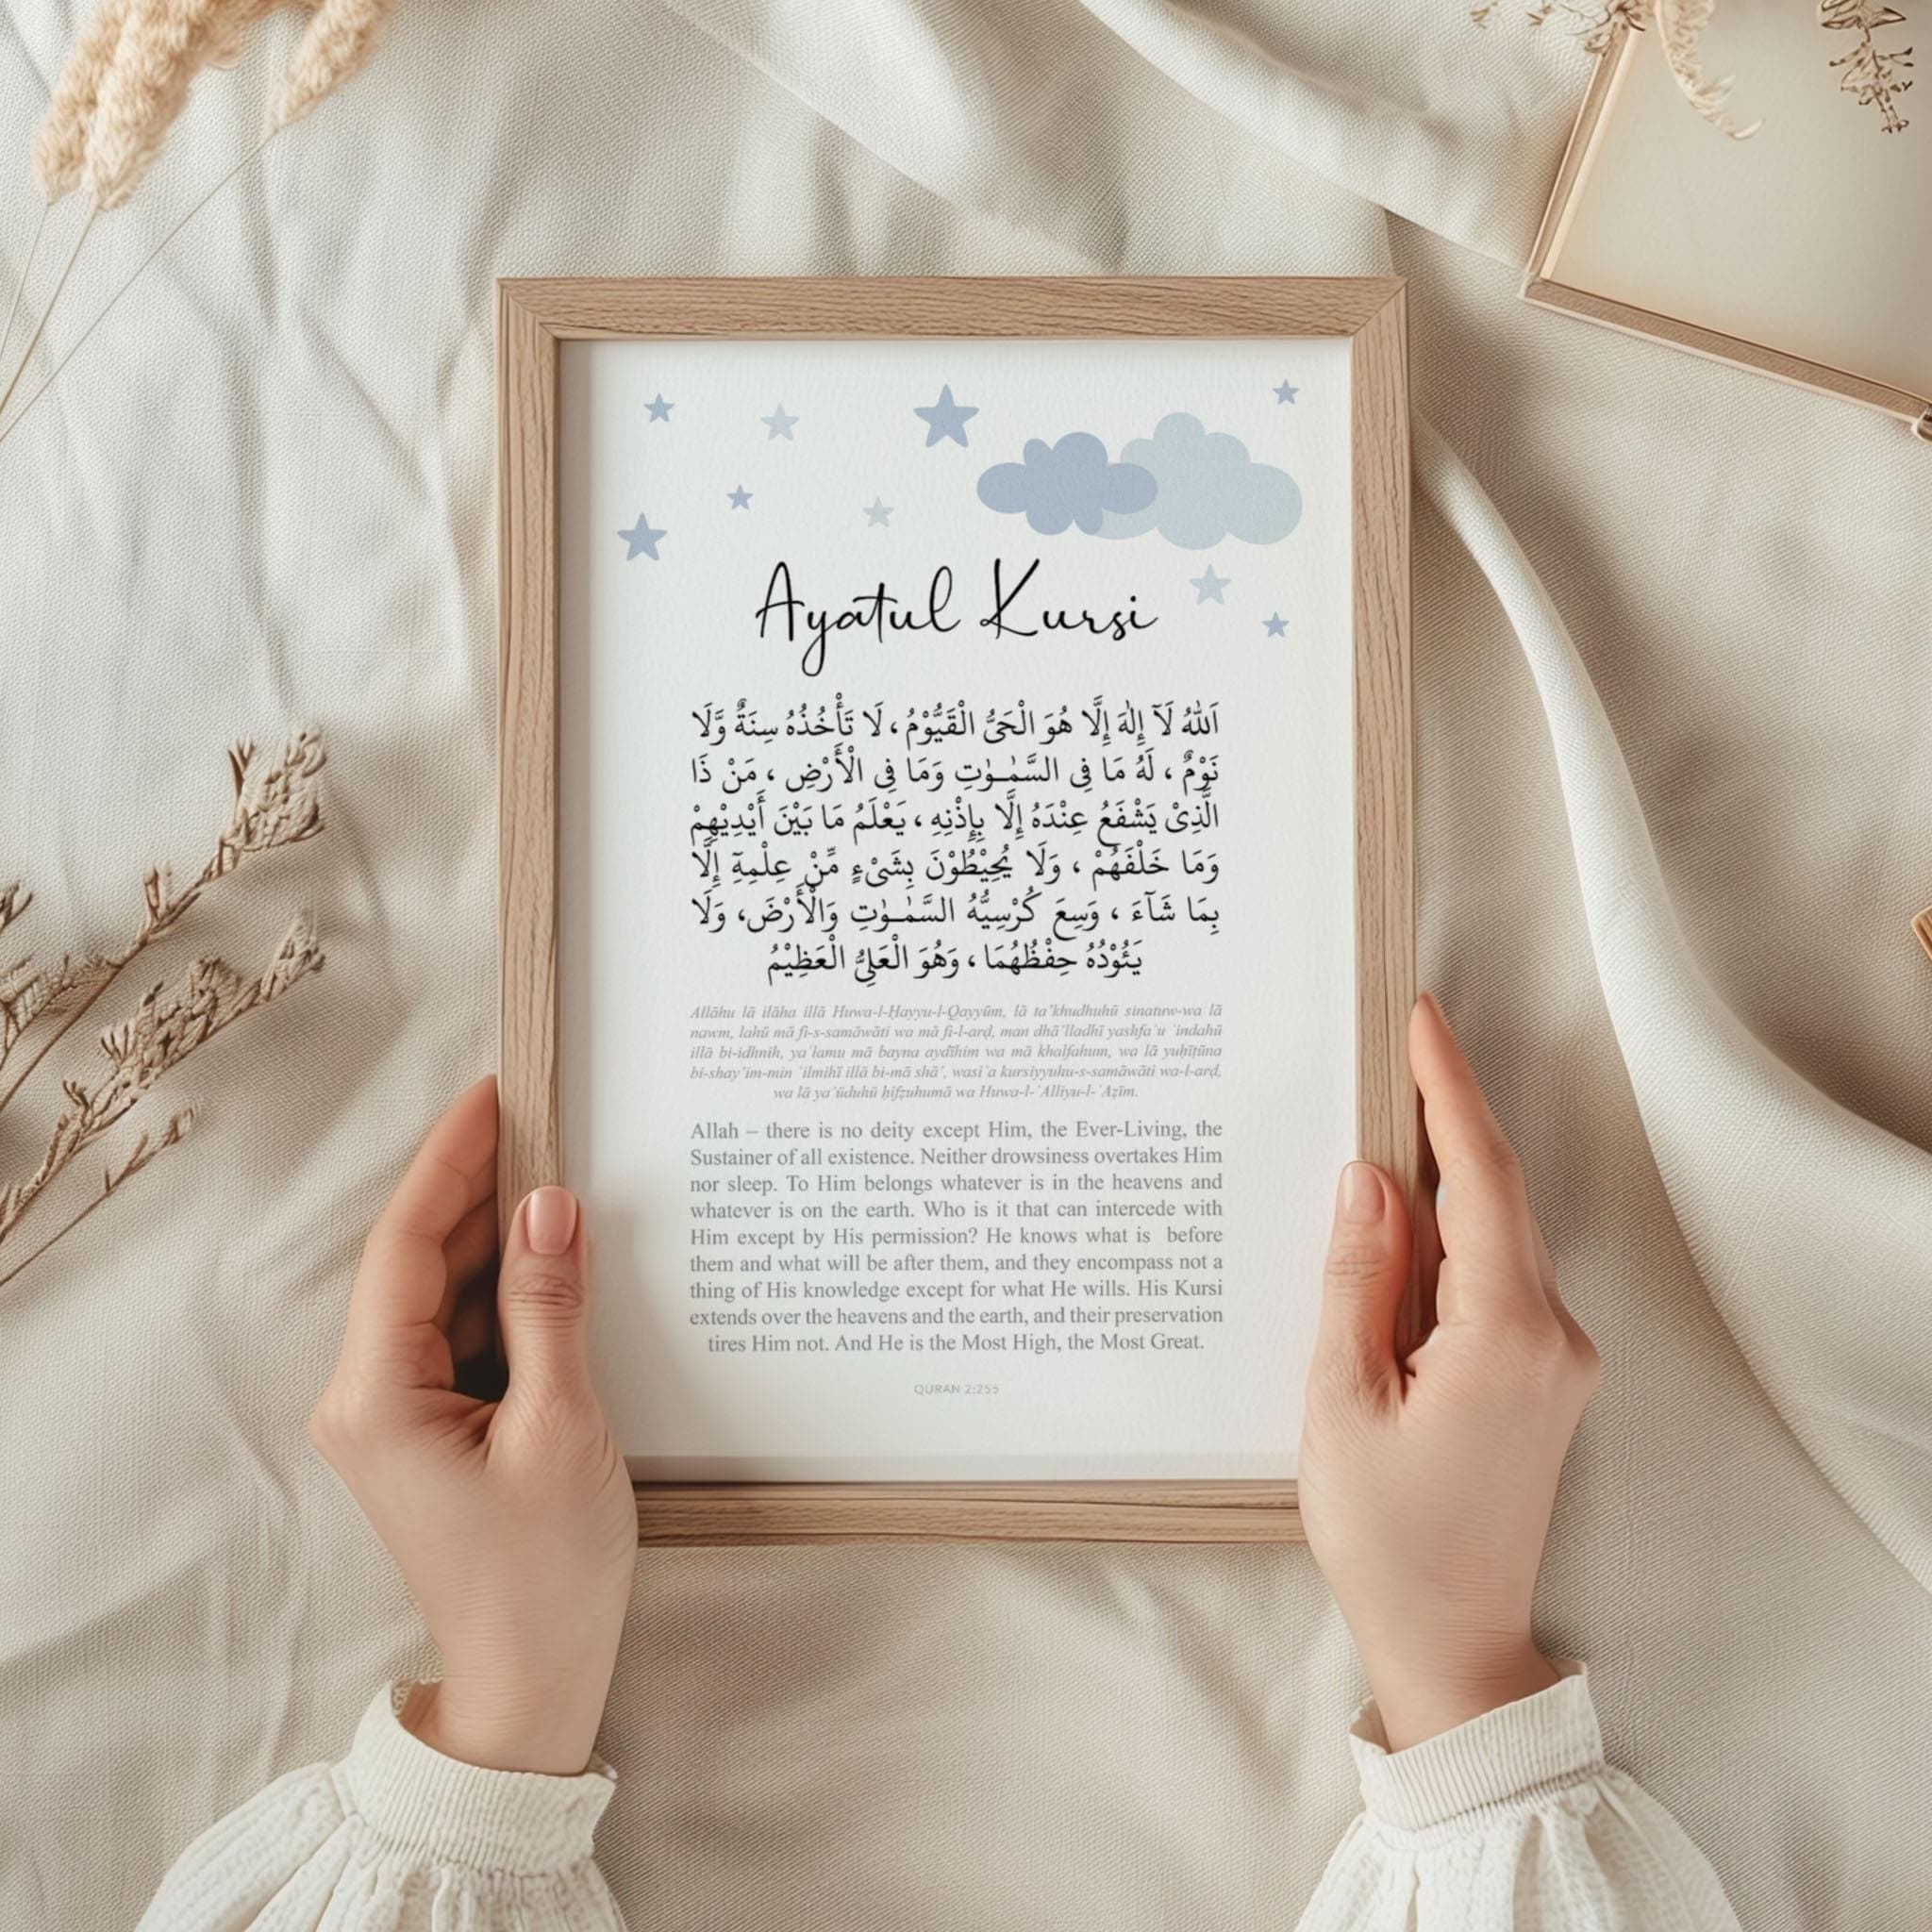 Ayatul Kursi
اَللّٰهُ لَآ إِلٰهَ إِلَّا هُوَ الْحَىُّ الْقَيُّوْمُ، لَا تَأْخُذُهُ سِنَةٌ وَّلَا
نَوْمٌ ، لَهُ مَا فِى السَّمٰـوٰتِ وَمَا فِى الْأَرْضِ ، مَنْ ذَا
الَّذِىْ يَشْفَعُ عِنْدَهُ إِلَّا بِإِذْنِهِ ، يَعْلَمُ مَا بَيْنَ أَيْدِيْهِمْ
وَمَا خَلْفَهُمْ ، وَلَا يُحِيْطُوْنَ بِشَىْءٍ مِّنْ عِلْمِهِٓ إِلَّا
بِمَا شَآءَ ، وَسِعَ كُرْسِيُّهُ السَّمٰـوٰتِ وَالْأَرْضَ، وَلَا
يَئُوْدُهُ حِفْظُهُمَا ، وَهُوَ الْعَلِىُّ الْعَظِيْمُ
Allāhu lā ilāha illā Huwa-l-Ḥayyu-l-Qayyūm, lā ta'khudhuhū sinatuw-wa lā
nawm, lahū mā fi-s-samāwāti wa mā fi-l-arḍ, man dhā'lladhī yashfaʿu ʿindahū
illā bi-idhnih, yaʿlamu mā bayna aydīhim wa mā khalfahum, wa lā yuḥīṭūna
bi-shay'im-min ʿilmihī illā bi-mā shā', wasiʿa kursiyyuhu-s-samāwāti wa-l-arḍ,
wa lā ya'ūduhū ḥifẓuhumā wa Huwa-l-ʿAlliyu-l-ʿAẓīm.
Allah – there is no deity except Him, the Ever-Living, the
Sustainer of all existence. Neither drowsiness overtakes Him
nor sleep. To Him belongs whatever is in the heavens and
whatever is on the earth. Who is it that can intercede with
Him except by His permission? He knows what is before
them and what will be after them, and they encompass not a
thing of His knowledge except for what He wills. His Kursi
extends over the heavens and the earth, and their preservation
tires Him not. And He is the Most High, the Most Great.
QURAN 2:255